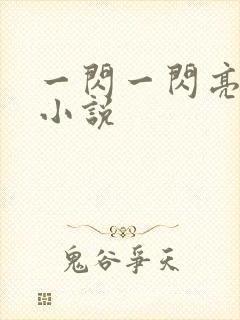 一閃一閃亮
小說
鬼谷爭天